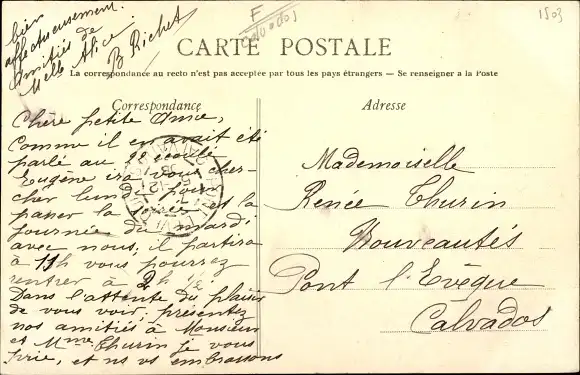 bien
affectueusement.
Amitiés de
Melle Alice.
B Richet
F
Calvados
1503
CARTE POSTALE
La correspondance au recto n'est pas acceptée par tous les pays étrangers — Se renseigner à la Poste
Correspondance
Adresse
Chère petite Amie,
Comme il en avait été
parlé au
Eugène ira vous cher-
cher lundi pour
passer la soirée et la
journée du mardi
avec nous, il partira
à 11h vous pourrez
rentrer à 2h 1/2
Dans l'attente du plaisir
de vous voir, présentez
nos amitiés à Monsieur
et Mme Thurin je vous
prie, et ns vs embrassons
Mademoiselle
Renée Thurin
Nouveautés
Pont l'Evêque
Calvados